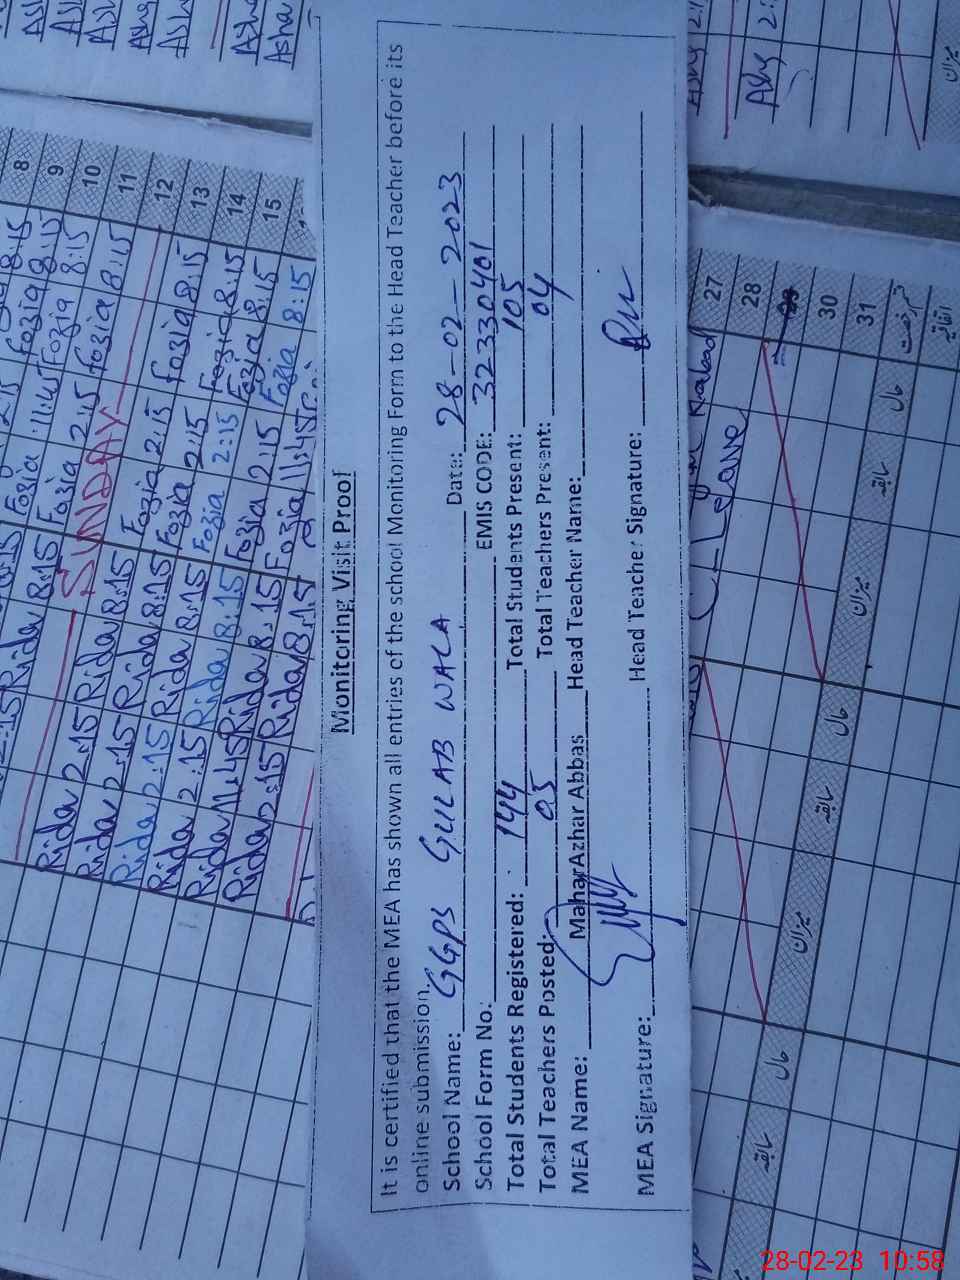 Monitoring Visit Proof
It is certified that the MEA has shown all entries of the school Monitoring Form to the Head Teacher before its
online submission.
School Name: GGPS GULAB WALA Date: 28-02-2023
School Form No.: EMIS CODE: 32330401
Total Students Registered: 144 Total Students Present: 105
Total Teachers Posted: 05 Total Teachers Present: 04
MEA Name: Mahar Azhar Abbas Head Teacher Name:
MEA Signature: Head Teacher Signature:
8
9
10
11
12
13
14
15
Rida 8:15 Fozia 11:45 Fozia 8:15
Fozia 2:15 Fozia 8:15
SUNDAY
Rida 2:15 Rida 8:15 Fozia 2:15 Fozia 8:15
Rida 2:15 Rida 8:15 Fozia 2:15 Fozia 8:15
Rida 2:15 Rida 8:15 Fozia 2:15 Fozia 8:15
Rida 2:15 Rida 8:15 Fozia 2:15 Fozia 8:15
Rida 11:45 Rida 8:15 Fozia 11:45
Rida 2:15 Rida 8:15
27
28
30
31
C-Leave
میزان
حال
سابقہ
میزان
حال
سابقہ
میزان
حال
سابقہ
اتفاقیہ
28-02-23 10:58